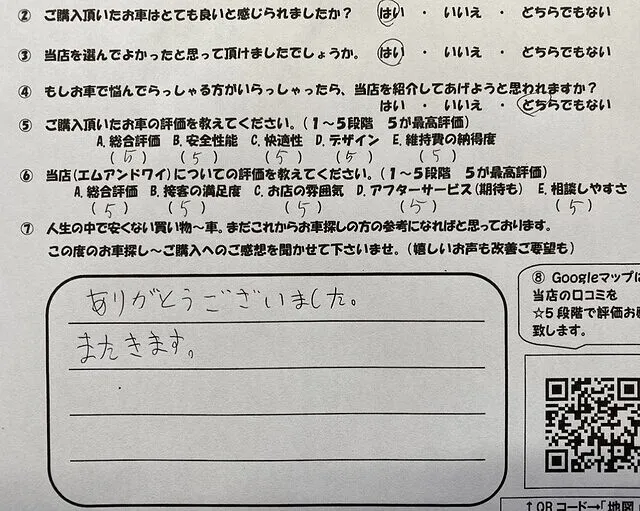 ② ご購入頂いたお車はとても良いと感じられましたか？ はい ・ いいえ ・ どちらでもない
③ 当店を選んでよかったと思って頂けましたでしょうか。 はい ・ いいえ ・ どちらでもない
④ もしお車で悩んでらっしゃる方がいらっしゃったら、当店を紹介してあげようと思われますか？
はい ・ いいえ ・ どちらでもない
⑤ ご購入頂いたお車の評価を教えてください。（１～５段階 ５が最高評価）
A. 総合評価 B. 安全性能 C. 快適性 D. デザイン E. 維持費の納得度
（5） （5） （5） （5） （5）
⑥ 当店（エムアンドワイ）についての評価を教えてください。（１～５段階 ５が最高評価）
A. 総合評価 B. 接客の満足度 C. お店の雰囲気 D. アフターサービス（期待も） E. 相談しやすさ
（5） （5） （5） （5） （5）
⑦ 人生の中で安くない買い物～車。まだこれからお車探しの方の参考になればと思っております。
この度のお車探し～ご購入へのご感想を聞かせて下さいませ。（嬉しいお声も改善ご要望も）
ありがとうございました。
またきます。
⑧ Googleマップに
当店の口コミを
☆５段階で評価お
致します。
↑QRコード→「地図